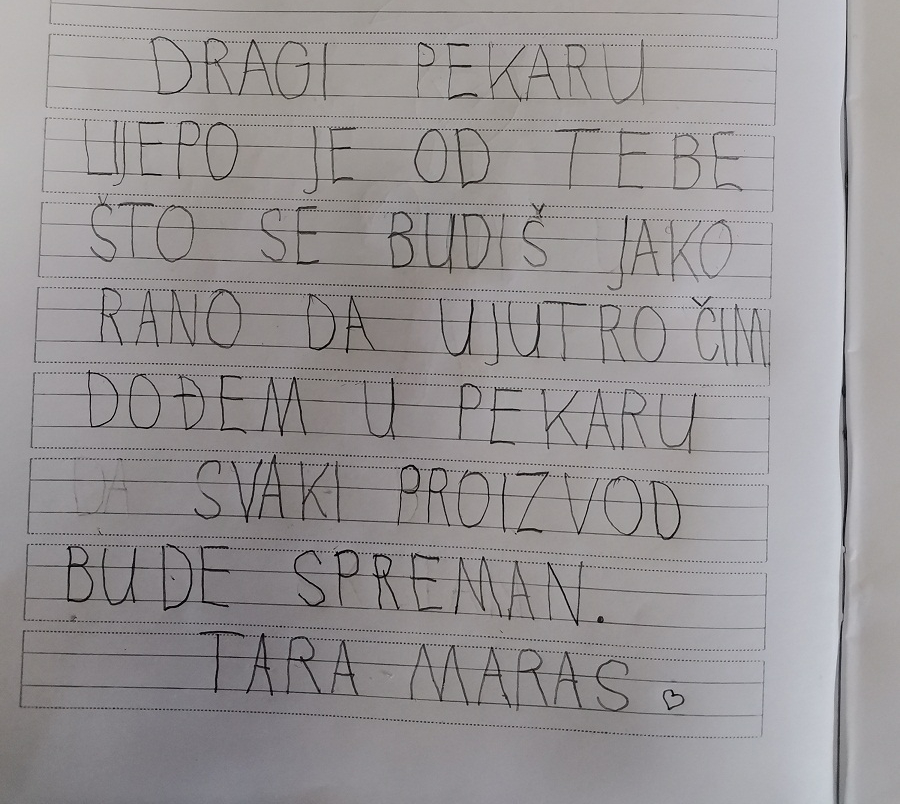 DRAGI PEKARU
LIJEPO JE OD TEBE
ŠTO SE BUDIŠ JAKO
RANO DA UJUTRO ČIM
DOĐEM U PEKARU
DA SVAKI PROIZVOD
BUDE SPREMAN.
TARA MARAS